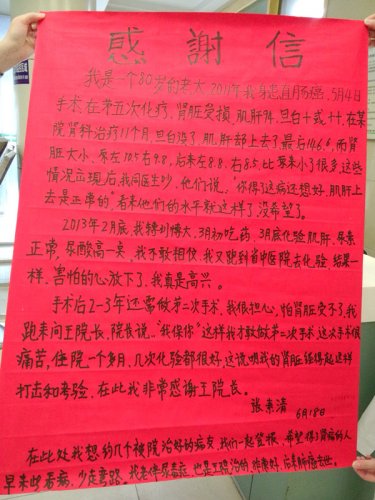 感謝信
我是一个80岁的老太,2011年我身患直肠癌,5月4日
手术,在第五次化疗,肾脏受损,肌肝94,旦白+或++,在某
院肾科治疗11个月,旦白没了,肌肝却上去了,最后146.6,而肾
脏大小,原左10.5右9.8,后来左8.8,右8.5,比原来小了很多,这些
情况出现后,我问医生吵,他们说:"你得了这病还想好,肌肝上
去是正常的,看来他们的水平就这样了,没希望了。
2013年2月底我转到博大,3月初吃药,3月底化验肌肝、尿素
正常,尿酸高一点,我不敢相信,我又跑到省中医院去化验,结果一
样,害怕的心放下了,我真是高兴。
手术后2-3年还需做第二次手术,我很担心,怕肾脏受不了,我
跑来问王院长,院长说:"我保你"这样我才敢做第二次手术,这次手术很
痛苦,住院一个多月,几次化验都很好,这说明我的肾脏经得起这样
打击和考验,在此我非常感谢王院长。
张来清
6月18日
在此处我想约几个被院治好的病友,我们一起登报,希望得了肾病的人
早来此看病,少走弯路,我老伴尿毒症,也是王院治的